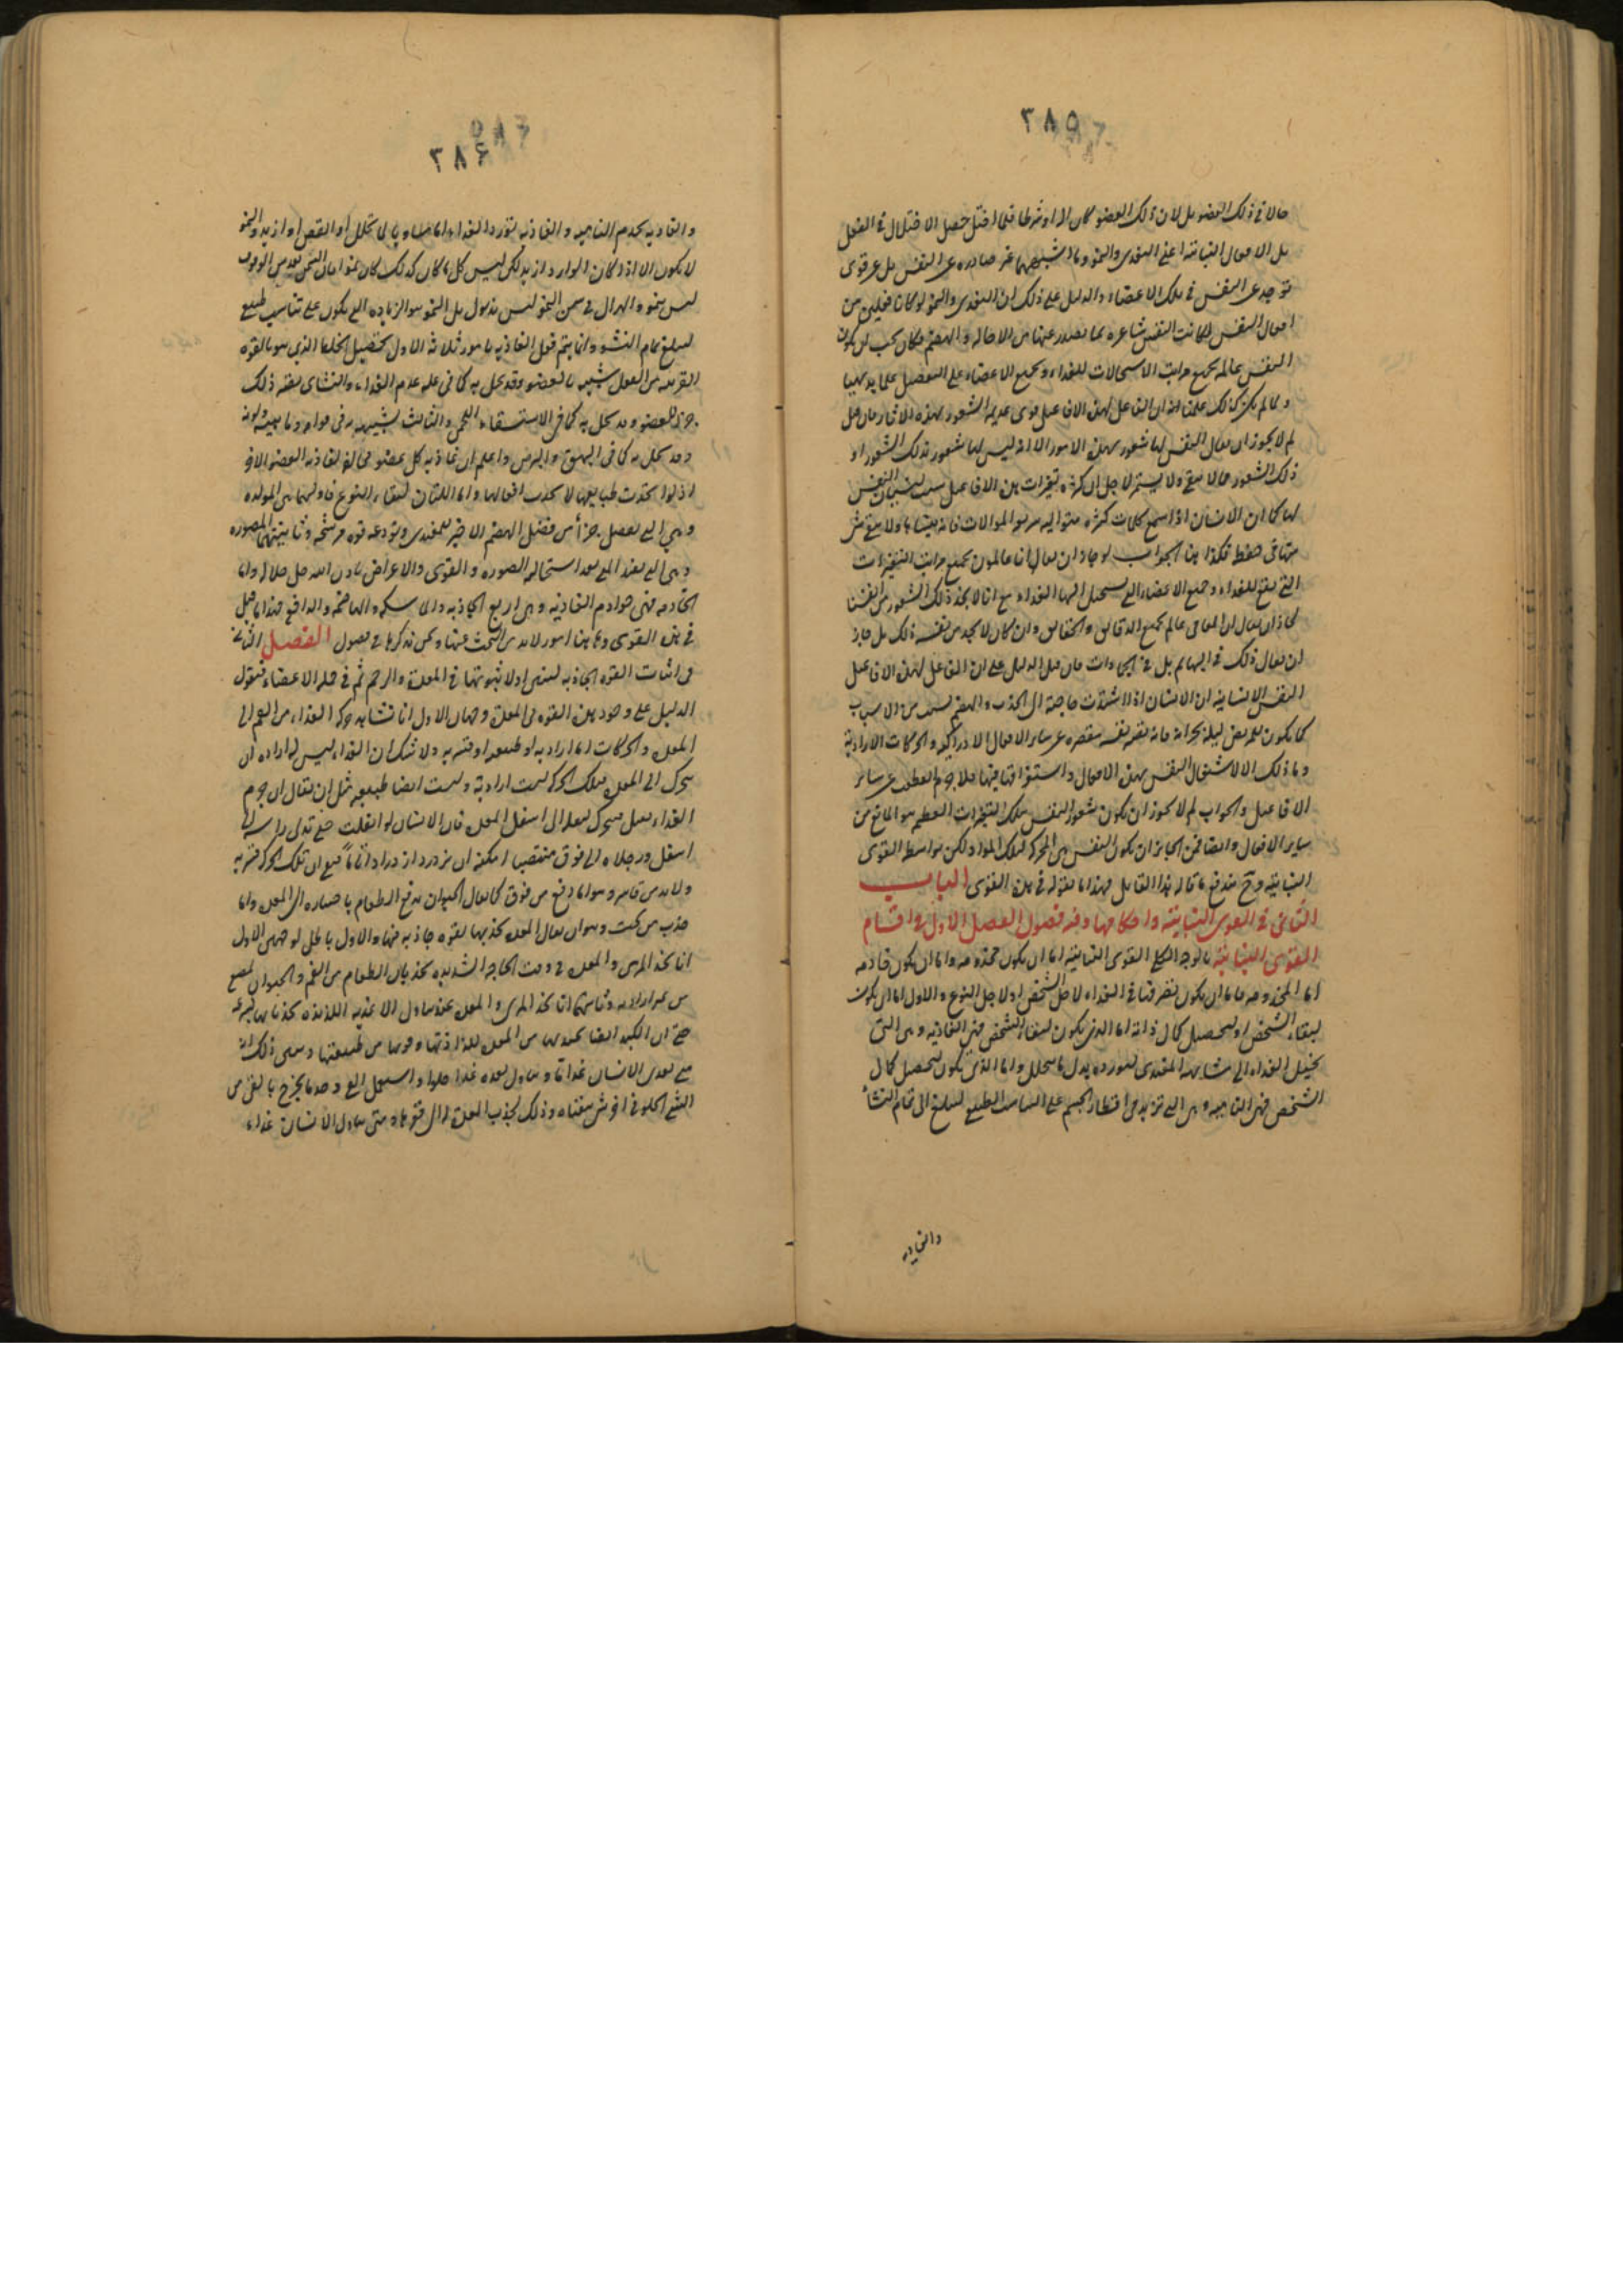 ٣٨٥
حالا فى ذلك العضو بل لان ذلك العضو كان الة او شرطا فلما اختل حصل الاختلال فى الفعل
بل الافعال النباتية اعنى التغذى والنمو وما اشبههما غير صادره عن النفس بل عن قوى
توجد عن النفس فى تلك الاعضاء والدليل على ذلك ان التغذى والنمو لو كانا فعلين من
افعال النفس لكانت النفس شاعره بما يصدر عنها من الاحاله والهضم فكان يجب ان يكون
النفس عالمة بجميع مراتب الاستحالات للغذاء وبجميع الاعضاء على التفصيل علما بديهيا
ولما لم يكن كذلك علمنا ان الفاعل لهذه الافاعيل قوى عديمة الشعور بهذه الاثار فان قيل
لم لا يجوز ان يقال النفس لها شعور بهذه الامور الا انه ليس لها شعور بذلك الشعور او
ذلك الشعور مما لا يبقى ولا يستمر لاجل ان كثرة تغيرات هذه الافاعيل سبب لنسيان النفس
لها كما ان الانسان اذا سمع كلمات كثيره متواليه فانه ينساها ولا يبقى شى
منها فى حفظه فكذا هنا الجواب لو جاز ان يقال انا عالمون بجميع مراتب التغيرات
التى تقع للغذاء وجميع الاعضاء التى يستحيل اليها الغذاء مع انا لا نجد ذلك الشعور من انفسنا
لجاز ان يقال ان العامى عالم بجميع الدقائق والحقائق وان كان لا يجد من نفسه ذلك بل جاز
ان يقال ذلك فى البهائم بل فى الجمادات فان قيل الدليل على ان الفاعل لهذه الافاعيل
النفس الانسانيه ان الانسان اذا اشتدت حاجته الى الجذب والهضم لسبب من الاسباب
كما يكون للمريض ليلة بحرانه فانه نفسه مقصره عن سائر الافعال الادراكيه والحركات الاراديه
وما ذلك الا لاشتغال النفس بهذه الافعال واستغراقها فيها فلا جرم تعطلت عن سائر
الافاعيل والجواب لم لا يجوز ان يكون شعور النفس بتلك التغيرات العظيمه هو المانع من
ساير الافعال وايضا فمن الجائز ان يكون النفس هى المحركه لتلك المواد لكن بواسطة القوى
النباتيه وح يندفع ما قاله هذا القائل فهذا ما نقوله فى هذه القوى الباب
الثانى فى القوى النباتيه واحكامها وفيه فصول الفصل الاول فى اقسام
القوى النباتيه بالوجه الكلى القوى النباتيه اما ان يكون مخدومه واما ان يكون خادمه
اما المخدومه فاما ان يكون تصرفها فى الغذاء لاجل الشخص او لاجل النوع والاول اما ان يكون
لبقاء الشخص او لتحصيل كمال ذاته اما الذى يكون لبقاء الشخص فهى الغاذيه وهى التى
تحيل الغذاء الى مشابهة المغتذى لتورده بدل ما يتحلل واما الذى يكون لتحصيل كمال
الشخص فهى الناميه وهى التى تزيد فى اقطار الجسم على التناسب الطبيعى ليبلغ الى تمام النشأ
والغاذيه
٣٨۶
والغاذيه تخدم الناميه والغاذيه تورد الغذاء اما مساويا لما تحلل او انقص او ازيد والنمو
لا يكون الا اذا كان الوارد ازيد لكن ليس كل ما كان كذلك كان نموا فان السمن بعد سن الوقوف
ليس بنمو والهزال فى سن النمو ليس بذبول بل النمو هو الزياده التى يكون على تناسب طبيعى
ليبلغ تمام النشو وانما يتم فعل الغاذيه بامور ثلاثه الاول تحصيل الخلط الذى هو بالقوه
القريبه من الفعل شبيه بالعضو وقد يخل به كما فى علة عدم الغذاء والثانى يصير ذلك
جزءا للعضو وقد يخل به كما فى الاستسقاء اللحمى والثالث تشبيهه به فى قوامه وماهيته ولونه
وقد يخل به كما فى البهق والبرص واعلم ان غاذية كل عضو مخالف لغاذية العضو الاخر
اذ لو اتحدت طبايعها لاتحدت افعالها واما اللتان لبقاء النوع فاوليهما هى المولده
وهى التى تفصل جزءأ من فضل الهضم الاخير للمغتذى وتودعه قوه من سنخه وثانيتهما المصوره
وهى التى تفيد المنى بعد استحالته الصوره والقوى والاعراض باذن الله جل جلاله واما
الخادمه فهى خوادم الغاذيه وهى اربع الجاذبه والماسكه والهاضمه والدافعه فهذا ما قيل
فى هذه القوى وهاهنا امور لابد من البحث عنها ونحن نذكرها فى فصول الفصل الثانى
فى اثبات القوه الجاذبه لنبين اولا ثبوتها فى المعدة والرحم ثم فى جملة الاعضاء فنقول
الدليل على وجود هذه القوه فى المعدة وجهان الاول انا نشاهد حركة الغذاء من الفم الى
المعده والحركات اما اراديه او طبيعيه او قسريه ولا شك ان الغذاء ليس له اراده ان
يتحرك الى المعدة فتلك الحركه ليست اراديه وليست ايضا طبيعيه مثل ان يقال ان جرم
الغذاء ثقيل فيتحرك لثقله الى اسفل المعده فان الانسان لو انقلب حتى تدلى راسه الى
اسفل ورجلاه الى فوق منتصبا امكنه ان يزدرد ازدرادا تاماً فبقى ان تلك الحركة قسريه
ولابد من قاسر وهو اما دفع من فوق كما يقال الحيوان يدفع الطعام باختياره الى المعده واما
جذب من تحت وهو ان يقال المعده تجذبها بقوه جاذبه فيها والاول باطل لوجهين الاول
انا نجد المرى والمعده فى وقت الحاجه الشديده تجذبان الطعام من الفم والحيوان يمضغ
من غير ارادته وثانيهما انا نجد المرى والمعدة عند تناول الاغذيه اللذيذه تجذبانها بسرعه
حتى ان الكبد ايضا تجذبها من المعده للذاذتها وقربها من طبيعتها ويبين ذلك انه
متى تغذى الانسان غذاءا وتناول بعده غذاءا حلوا واستعمل القى وجد ما يخرج بالقى من
الشى الحلو فى اخر شى يتقياه وذلك لجذب المعدة له الى قعرها ومتى تناول الانسان غذاء